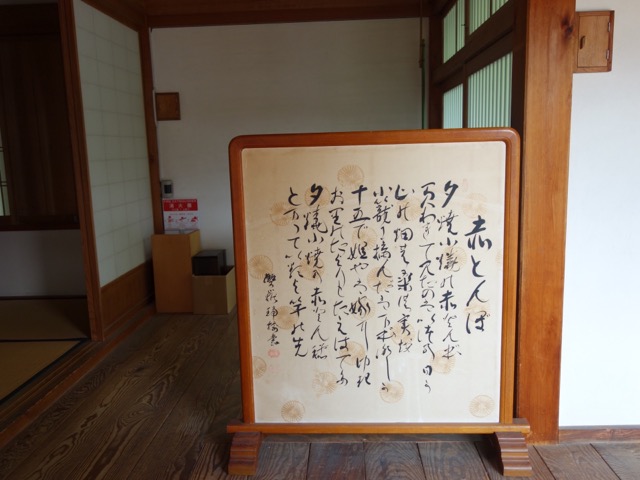 赤とんぼ
夕焼小焼の赤とんぼ
負われて見たのはいつの日か
山の畑の桑の実を
小籠に摘んだはまぼろしか
十五で姐やは嫁に行き
お里のたよりもたえはてた
夕焼小焼の赤とんぼ
とまっているよ竿の先